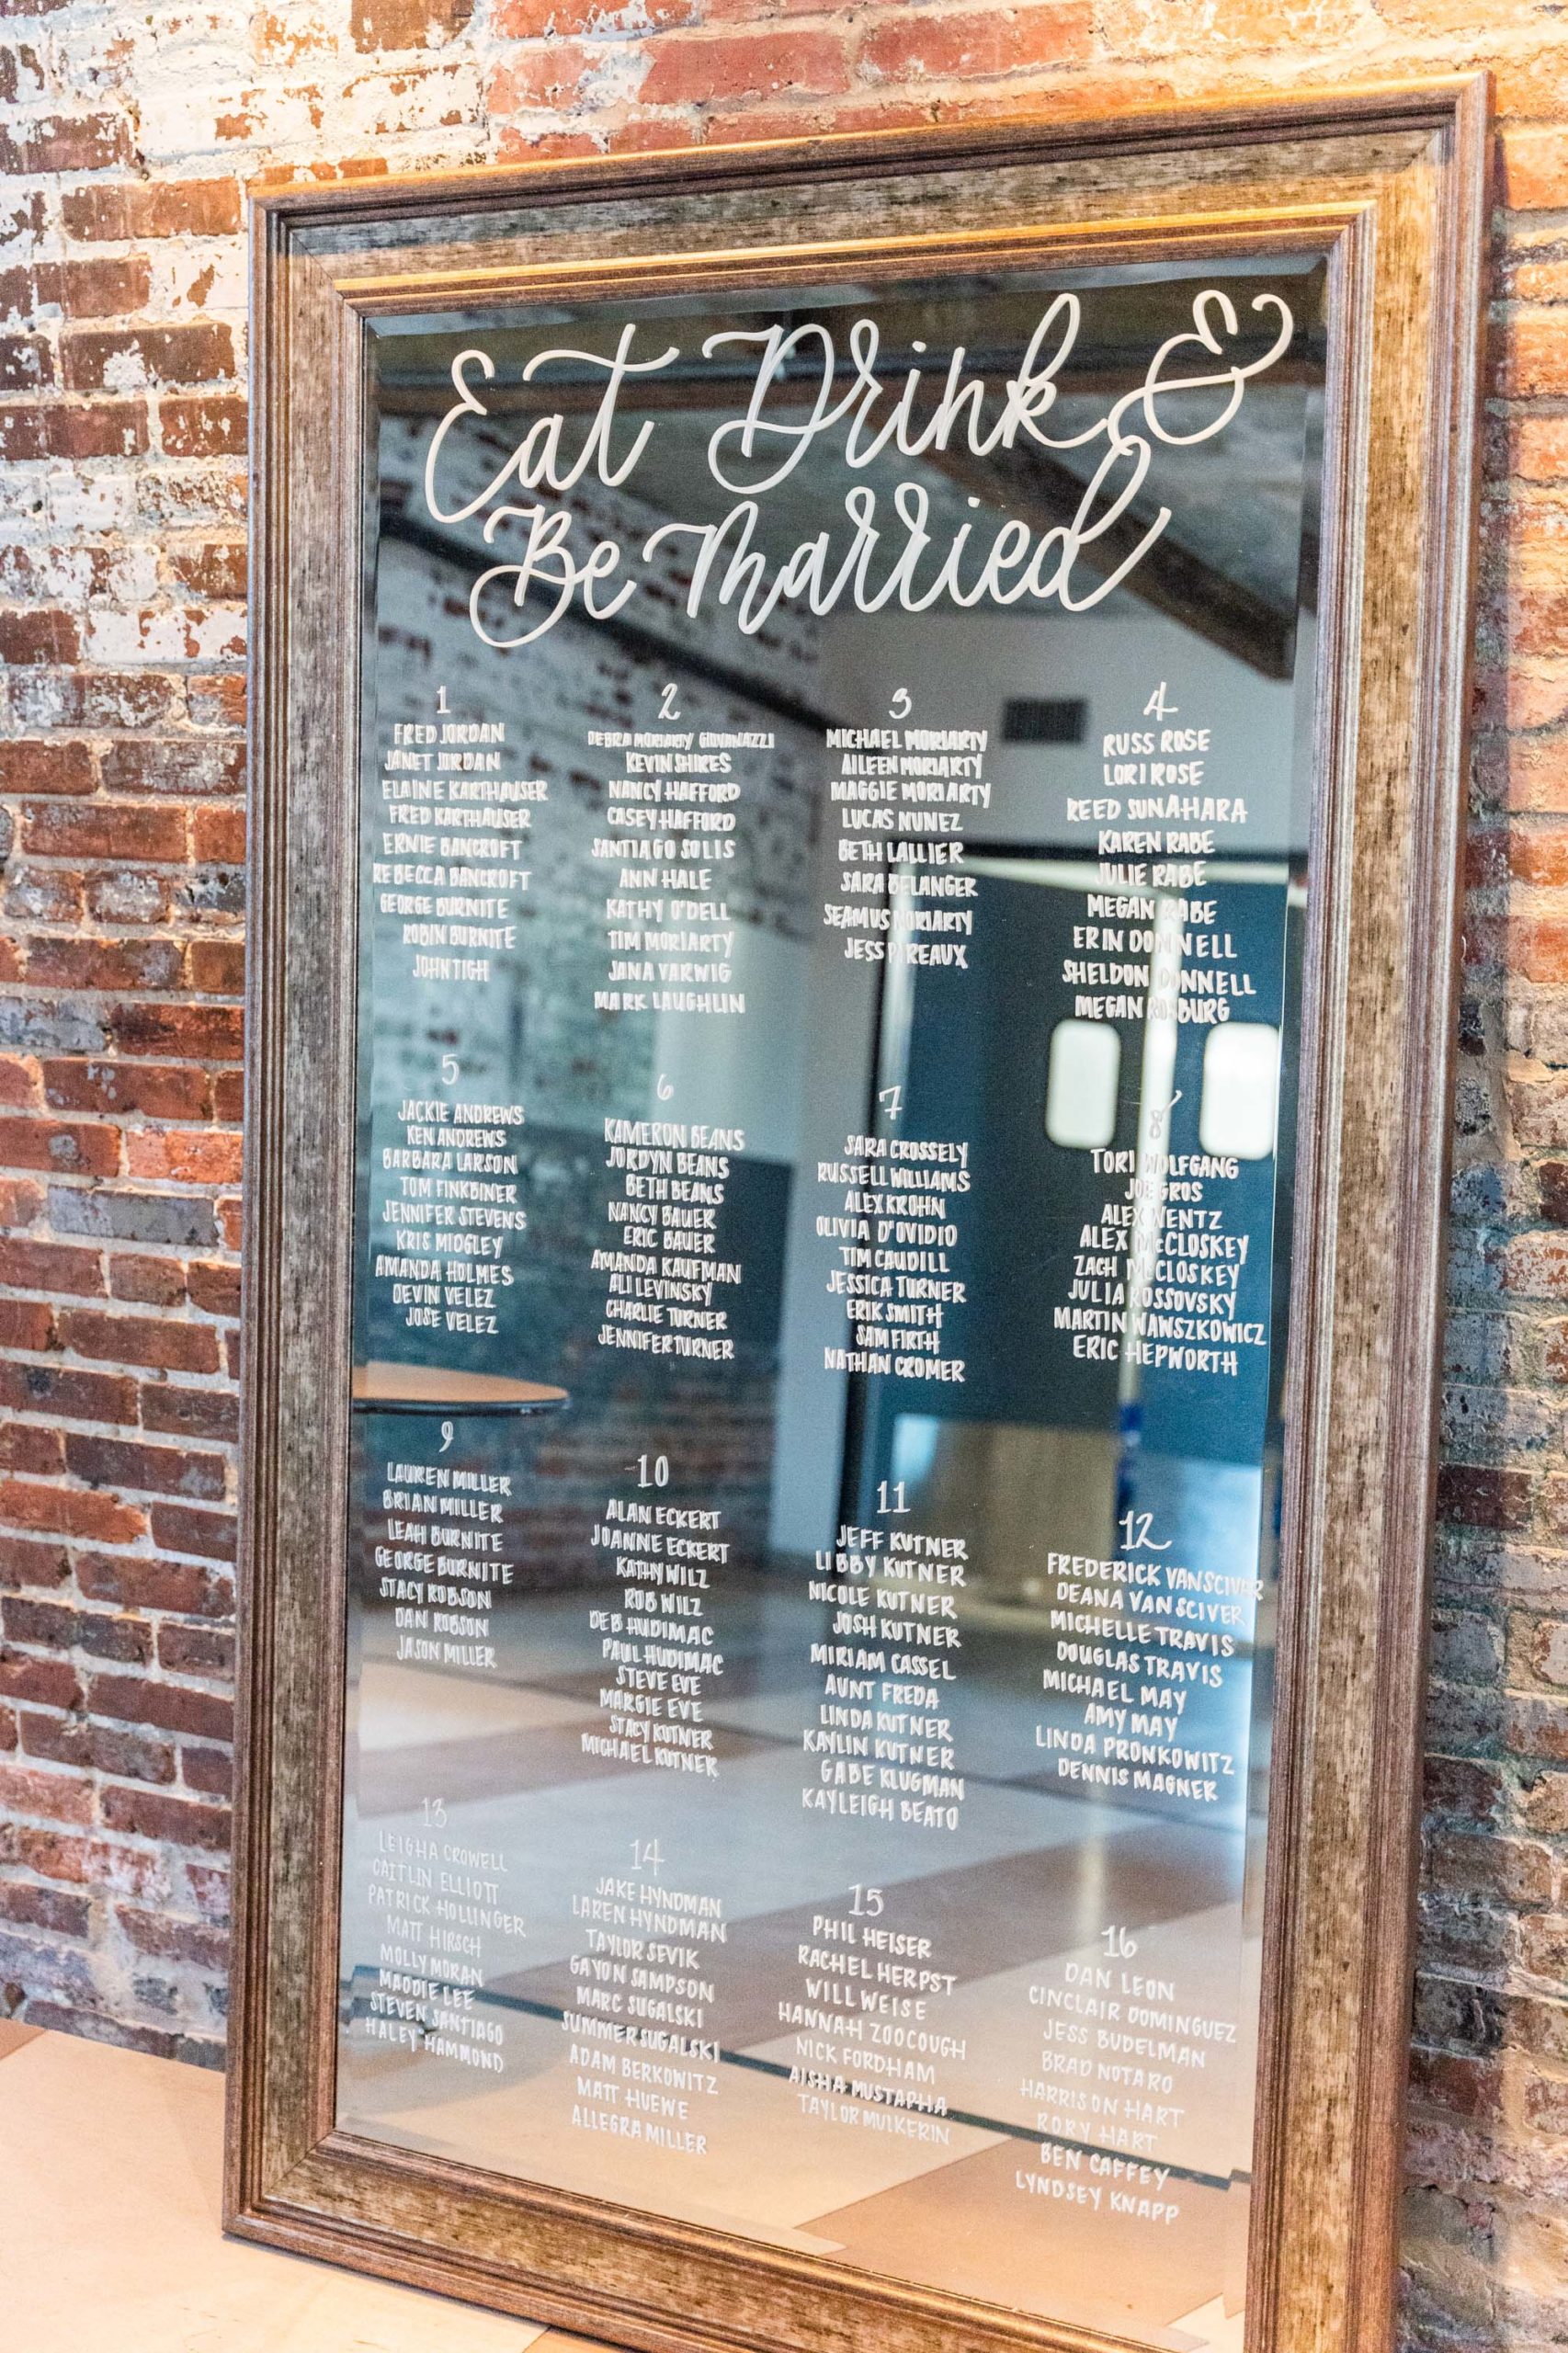 Eat Drink &
Be Married
1
FRED JORDAN
JANET JORDAN
ELAINE KARTHAUSER
FRED KARTHAUSER
ERNIE BANCROFT
REBECCA BANCROFT
GEORGE BURNITE
ROBIN BURNITE
JOHN TIGH
2
DEBRA MORIARTY GIOVANAZZI
KEVIN SHIRES
NANCY HAFFORD
CASEY HAFFORD
SANTIAGO SOLIS
ANN HALE
KATHY O'DELL
TIM MORIARTY
JANA VARWIG
MARK LAUGHLIN
3
MICHAEL MORIARTY
AILEEN MORIARTY
MAGGIE MORIARTY
LUCAS NUNEZ
BETH LALLIER
SARA BELANGER
SEAMUS MORIARTY
JESS
4
RUSS ROSE
LORI ROSE
REED SUNAHARA
KAREN RABE
JULIE RABE
MEGAN RABE
ERIN DONNELL
SHELDON DONNELL
MEGAN
5
JACKIE ANDREWS
KEN ANDREWS
BARBARA LARSON
TOM FINKBINER
JENNIFER STEVENS
KRIS MIDGLEY
AMANDA HOLMES
DEVIN VELEZ
JOSE VELEZ
6
KAMERON BEANS
JORDYN BEANS
BETH BEANS
NANCY BAUER
ERIC BAUER
AMANDA KAUFMAN
ALI LEVINSKY
CHARLIE TURNER
JENNIFER TURNER
7
SARA CROSSELY
RUSSELL WILLIAMS
ALEX KROHN
OLIVIA D'OVIDIO
TIM CAUDILL
JESSICA TURNER
ERIK SMITH
SAM FIRTH
NATHAN CROMER
8
TORI WOLFGANG
JOE GROS
ALEX WENTZ
ALEX McCLOSKEY
ZACH McCLOSKEY
JULIA KOSSOVSKY
MARTIN WAWSZKOWICZ
ERIC HEPWORTH
9
LAUREN MILLER
BRIAN MILLER
LEAH BURNITE
GEORGE BURNITE
STACY ROBSON
DAN ROBSON
JASON MILLER
10
ALAN ECKERT
JOANNE ECKERT
KATHY WILZ
ROB WILZ
DEB HUDIMAC
PAUL HUDIMAC
STEVE EVE
MARGIE EVE
STACY KUTNER
MICHAEL KUTNER
11
JEFF KUTNER
LIBBY KUTNER
NICOLE KUTNER
JOSH KUTNER
MIRIAM CASSEL
AUNT FREDA
LINDA KUTNER
KAYLIN KUTNER
GABE KLUGMAN
KAYLEIGH BEATO
12
FREDERICK VANSCIVER
DEANA VANSCIVER
MICHELLE TRAVIS
DOUGLAS TRAVIS
MICHAEL MAY
AMY MAY
LINDA PRONKOWITZ
DENNIS MAGNER
13
LEIGHA CROWELL
CAITLIN ELLIOTT
PATRICK HOLLINGER
MATT HIRSCH
MOLLY MORAN
MADDIE LEE
STEVEN SANTIAGO
HALEY HAMMOND
14
JAKE HYNDMAN
LAREN HYNDMAN
TAYLOR SEVIK
GAYON SAMPSON
MARC SUGALSKI
SUMMER SUGALSKI
ADAM BERKOWITZ
MATT HUEWE
ALLEGRA MILLER
15
PHIL HEISER
RACHEL HERPST
WILL WEISE
HANNAH ZOOCOUGH
NICK FORDHAM
AISHA MUSTAPHA
TAYLOR MULKERIN
16
DAN LEON
CINCLAIR DOMINGUEZ
JESS BUDELMAN
BRAD NOTARO
HARRISON HART
RORY HART
BEN CAFFEY
LYNDSEY KNAPP